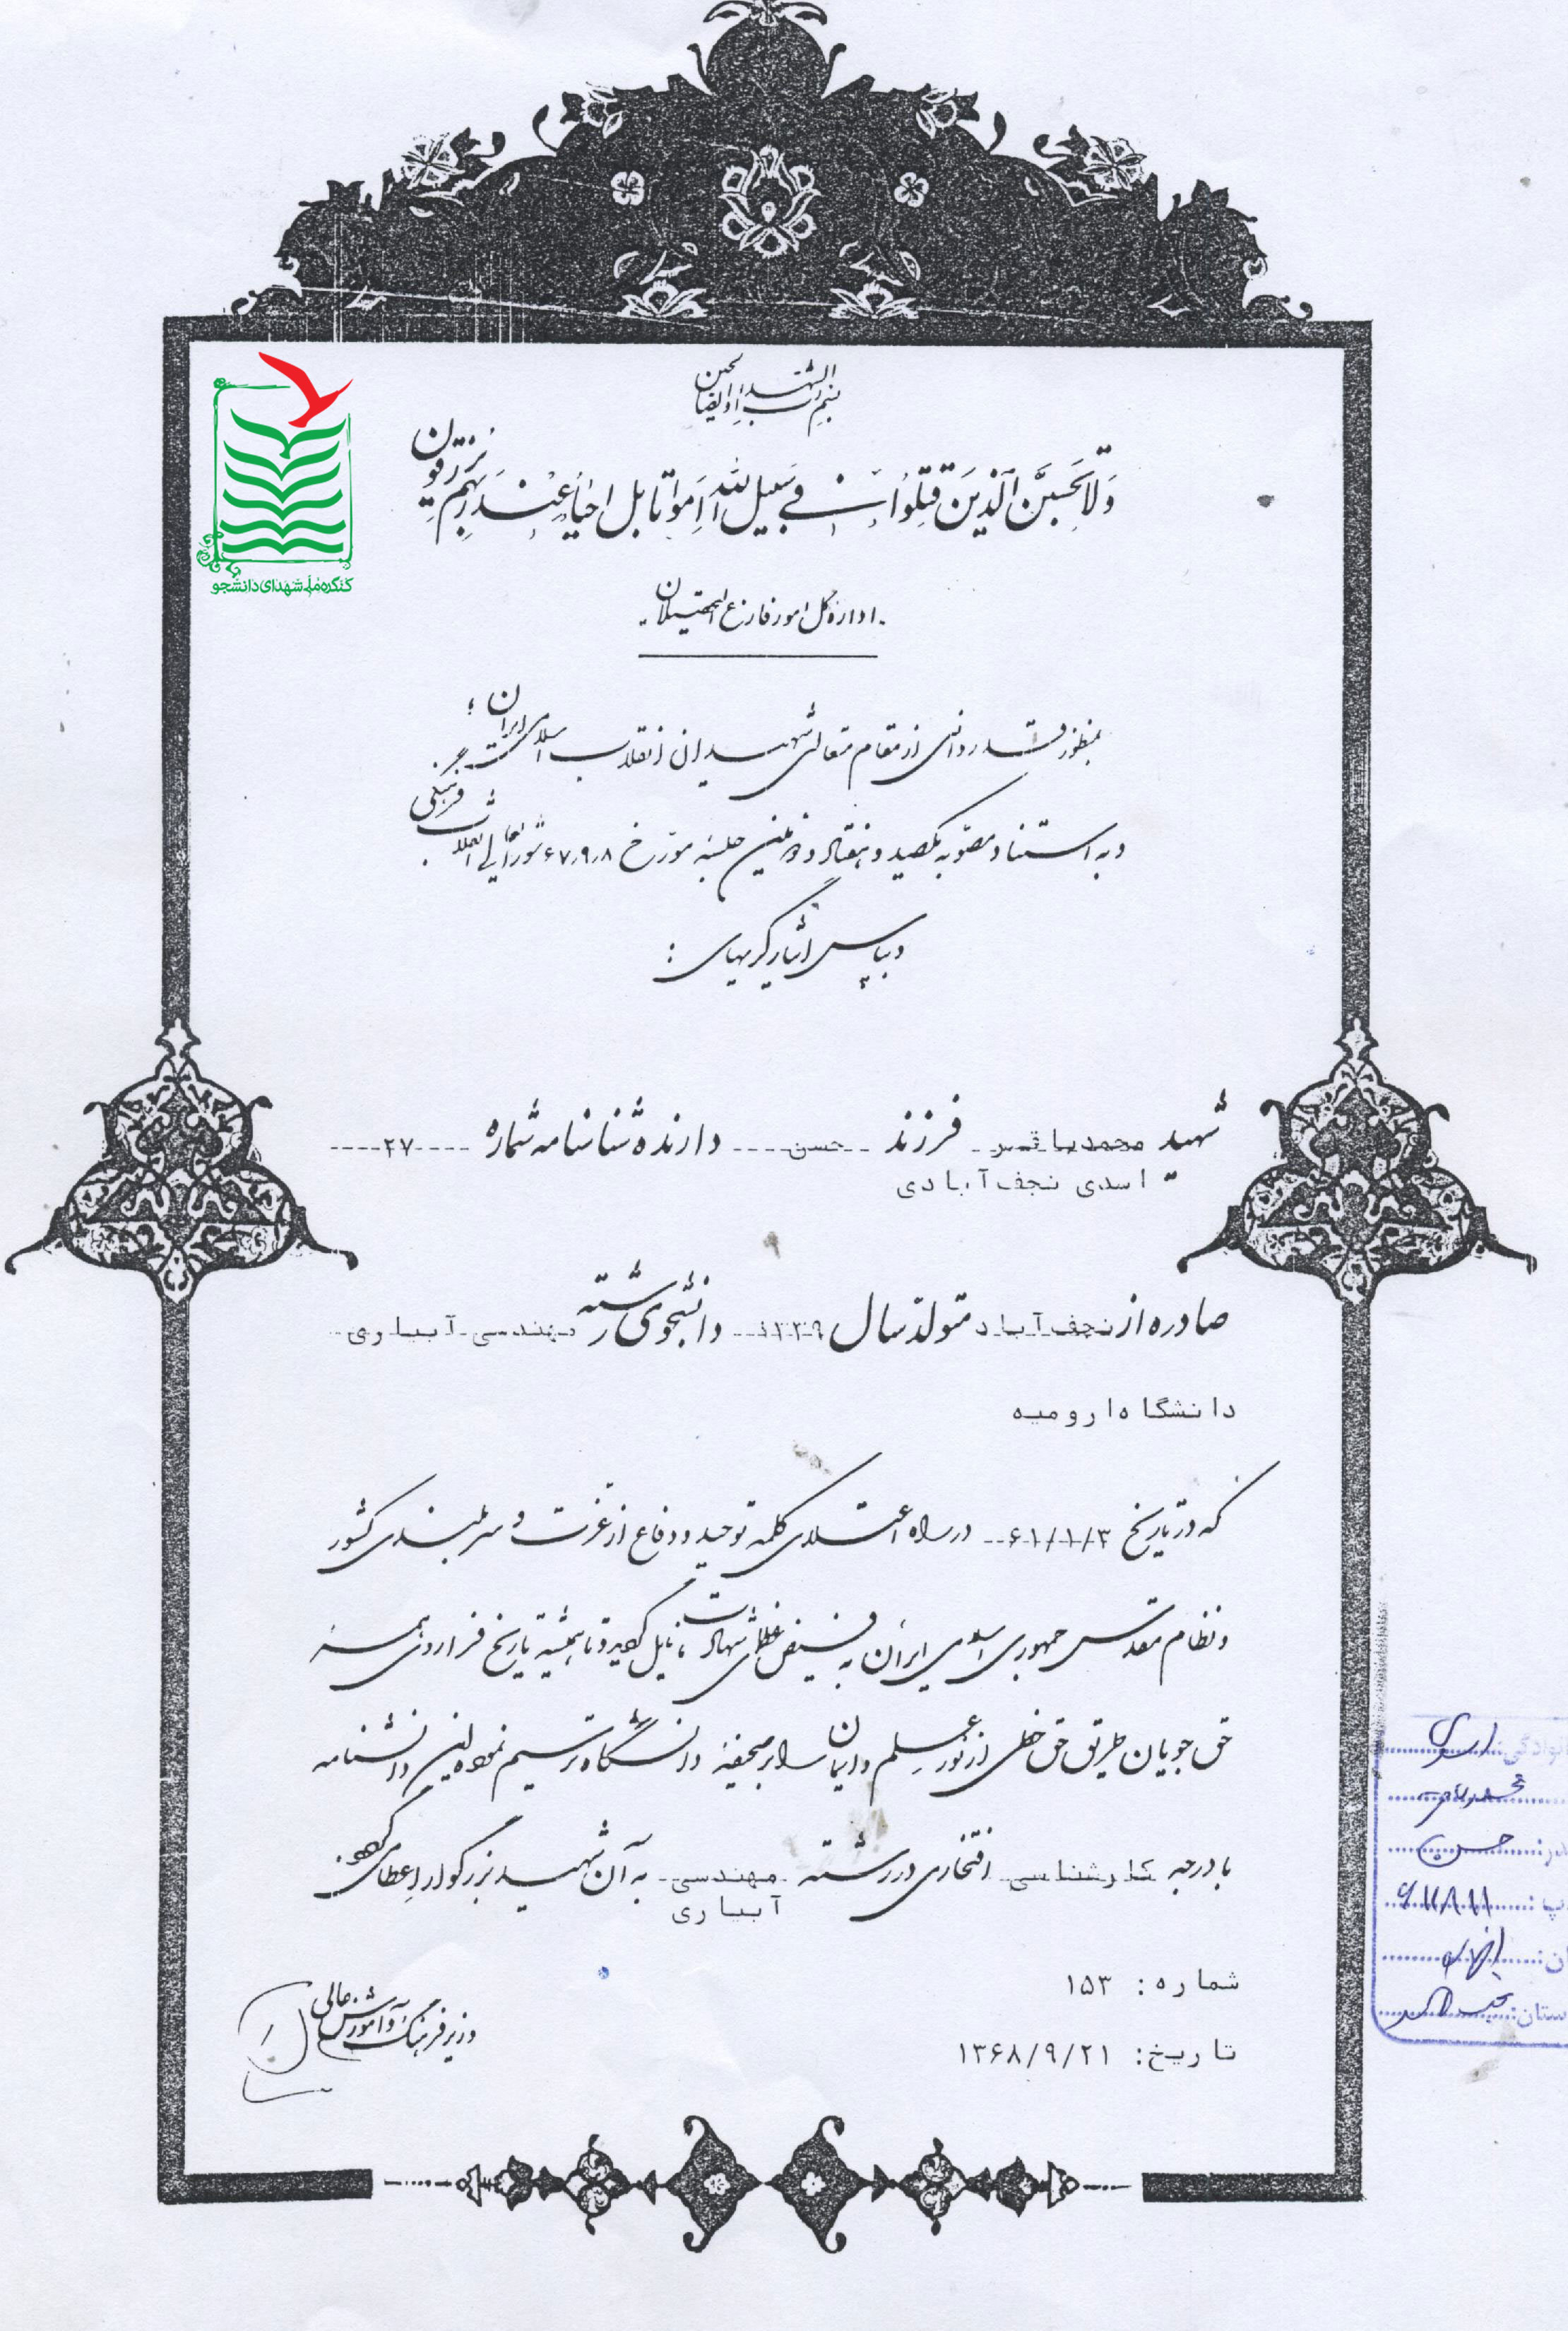 بسم رب الشهداء و الصالحین
وَلَا تَحْسَبَنَّ الَّذِینَ قُتِلُوا فِی سَبِیلِ اللهِ اَمْوَاتًا بَلْ اَحْیَاءٌ عِنْدَ رَبِّهِمْ یُرْزَقُونَ
کنگره ملی شهدای دانشجو
اداره کل امور فارغ التحصیلان
بمنظور قدردانی از مقام متعالی شهیدان انقلاب اسلامی ایران ؛
و به استناد مصوبه یکصد و هفتاد و دومین جلسه مورخ ۶۷٫۹٫۸ شورایعالی انقلاب فرهنگی
و بپاس ایثارگریهای :
شهید محمدباقر فرزند حسن دارنده شناسنامه شماره ۲۷
اسدی نجف آبادی
صادره از نجف آباد متولد سال ۱۳۳۹ دانشجوی رشته مهندسی آبیاری
دانشگاه ارومیه
که در تاریخ ۶۱/۱/۳ در راه اعتلای کلمه توحید و دفاع از عزت و سربلندی کشور
و نظام مقدس جمهوری اسلامی ایران به فیض عظمای شهادت نایل گردید و تا همیشه تاریخ فراروی همه
حق جویان طریق حق خطی از نور علم و ایمان را بر صحیفه دانشگاه ترسیم نموده این دانشنامه
با درجه کارشناسی افتخاری در رشته مهندسی به آن شهید بزرگوار اعطا می گردد.
آبیاری
شماره: ۱۵۳
تاریخ: ۱۳۶۸/۹/۲۱
وزیر فرهنگ و آموزش عالی
اسدی
حسن